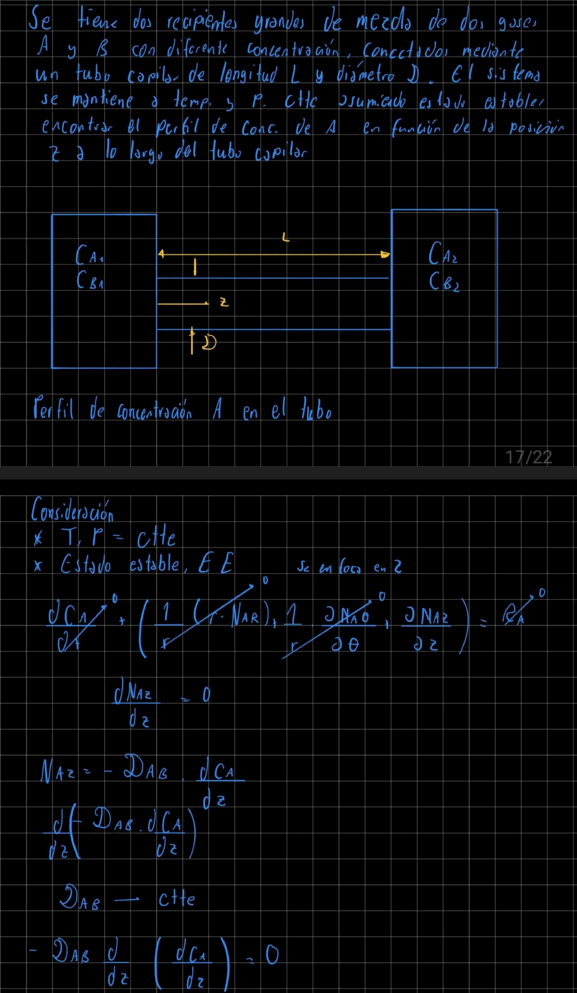 Se tiene dos recipientes grandes de mezcla de dos gases
A y B con diferente concentración, conectados mediante
un tubo capilar de longitud L y diámetro D. El sistema
se mantiene a temp. y P. ctte asumiendo estado estable,
encontrar el perfil de conc. de A en función de la posición
z a lo largo del tubo capilar
L
C_A1
C_B1
z
D
C_A2
C_B2
Perfil de concentración A en el tubo
17/22
Consideración
* T, P = ctte
* Estado estable, EE
se enfoca en z
dC_A/dt → 0 + (1/r (r·N_AR) → 0, 1/r ∂N_Aθ/∂θ → 0, ∂N_AZ/∂z) = R_A → 0
dN_AZ/dz = 0
N_AZ = - D_AB · dC_A/dz
d/dz (- D_AB · dC_A/dz)
D_AB — ctte
- D_AB d/dz (dC_A/dz) = 0